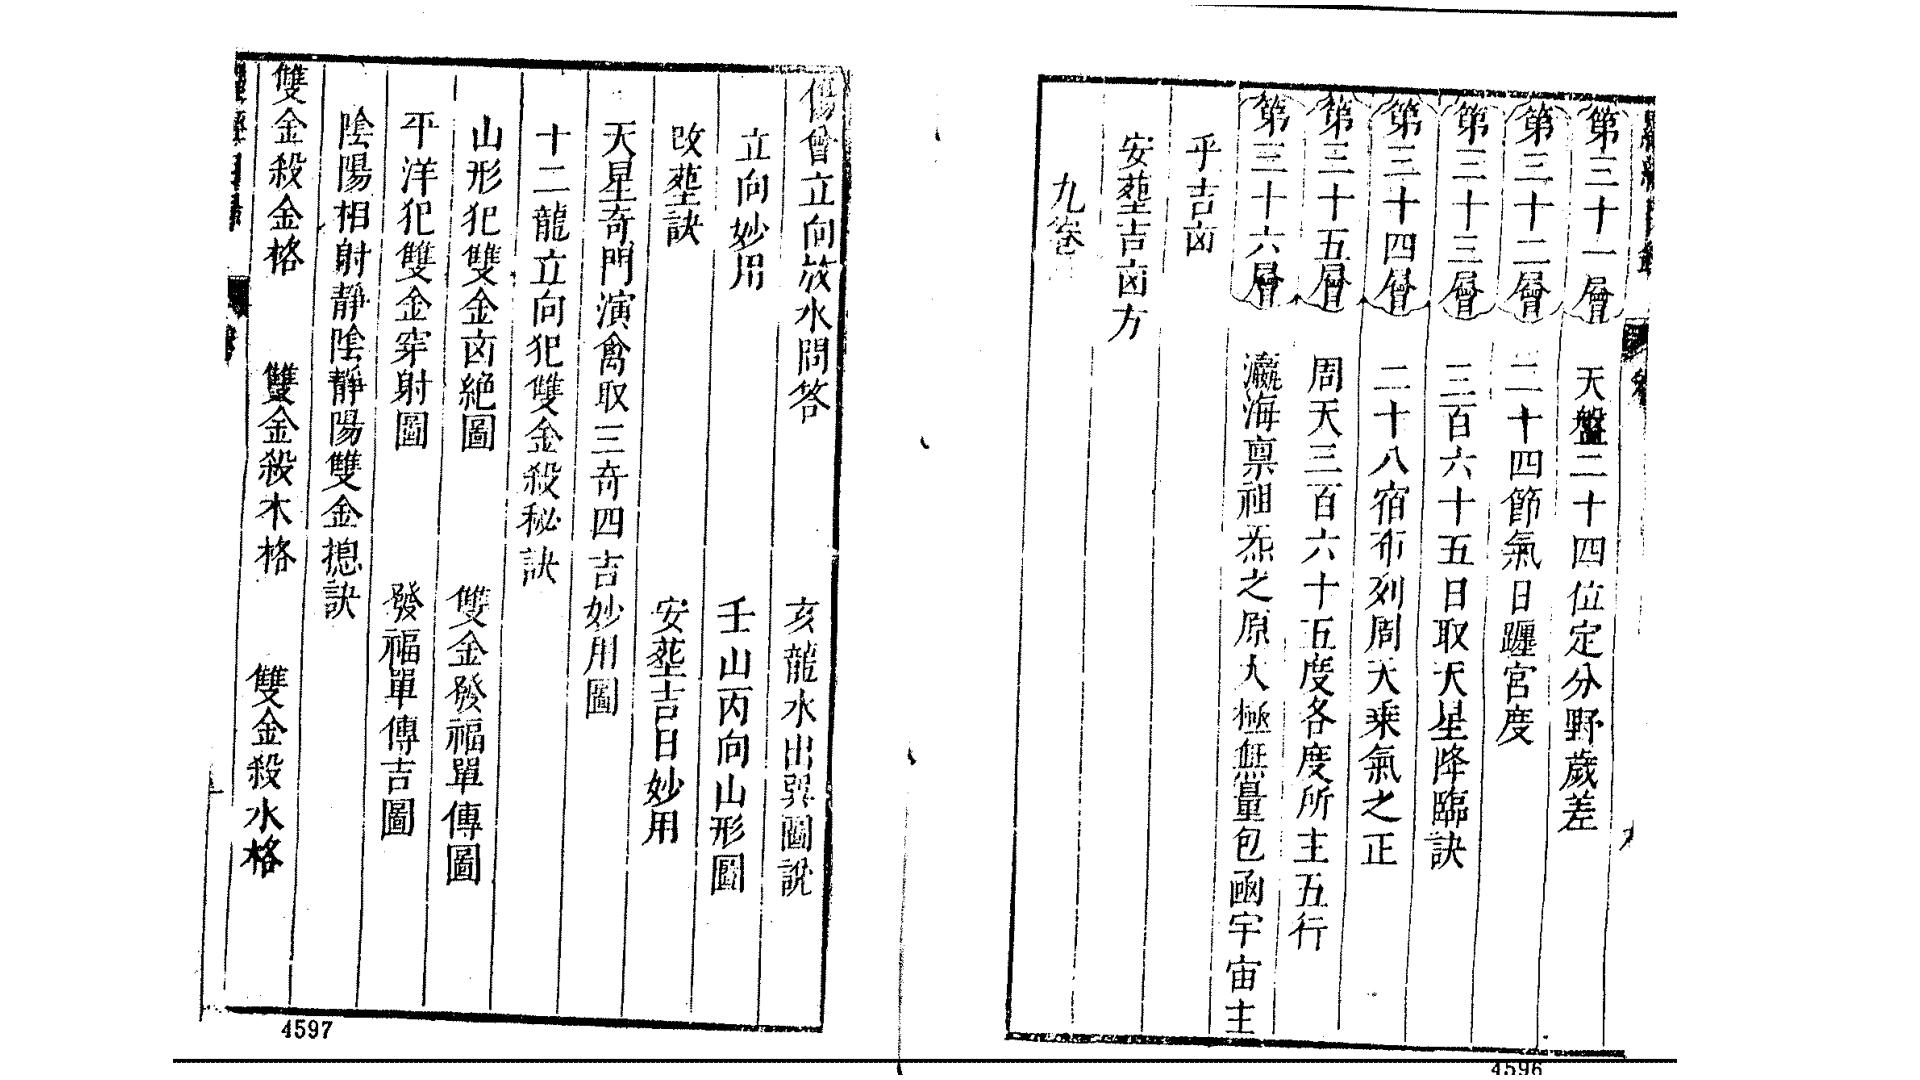 第三十一層　天盤二十四位定分野歲差
第三十二層　二十四節氣日躔宮度
第三十三層　三百六十五日取天星降臨訣
第三十四層　二十八宿布列周天乘氣之正
第三十五層　周天三百六十五度各度所主五行
第三十六層　瀛海禀祖炁之原大極無量包函宇宙主
乎吉凶
安塟吉凶方
九卷
4596
會立向放水問答　亥龍水出巽圖說
立向妙用　壬山丙向山形圖
改塟訣　安塟吉日妙用
天星奇門演禽取三奇四吉妙用圖
十二龍立向犯雙金殺秘訣
山形犯雙金凶絕圖　雙金發福單傳圖
平洋犯雙金穿射圖　發福單傳吉圖
陰陽相射靜陰靜陽雙金摠訣
雙金殺金格　雙金殺木格　雙金殺水格
4597